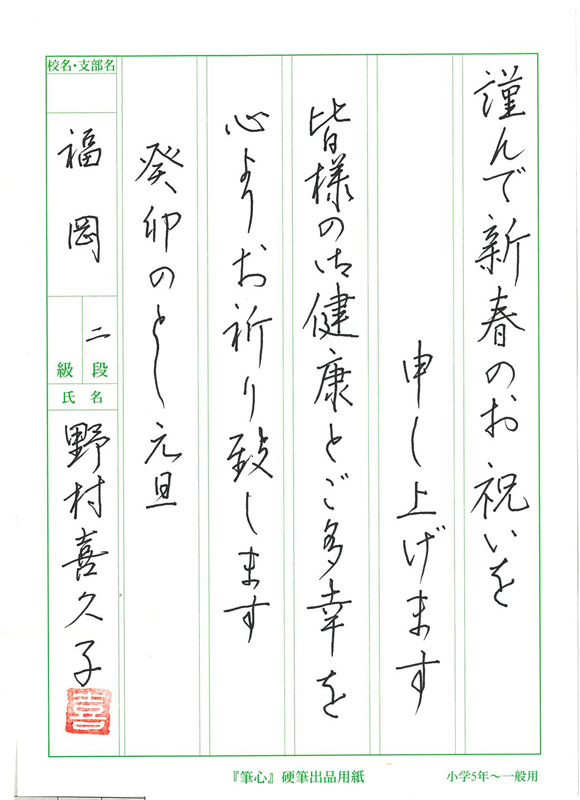 謹んで新春のお祝いを
申し上げます
皆様の御健康とご多幸を
心よりお祈り致します
癸卯のとし元旦
校名・支部名
福岡
二
段
級
氏名
野村喜久子
喜
『筆心』硬筆出品用紙
小学5年〜一般用